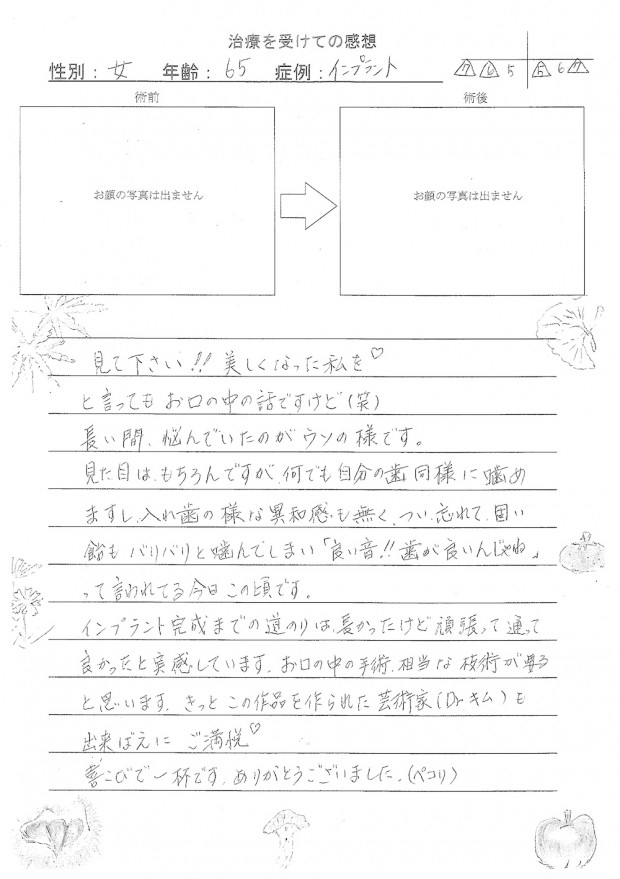 治療を受けての感想
性別：女 年齢：65 症例：インプラント
⑦⑥5 ⑤6⑦
術前 術後
お顔の写真は出ません お顔の写真は出ません
見て下さい!! 美しくなった私を♡
と言っても お口の中の話ですけど(笑)
長い間、悩んでいたのが ウソの様です。
見た目は、もちろんですが、何でも自分の歯同様に噛め
ますし、入れ歯の様な異和感も無く、つい、忘れて、固い
飴も バリバリと噛んでしまい「良い音!! 歯が良いんじゃね」
って言われてる今日この頃です。
インプラント完成までの道のりは、長かったけど頑張って通って
良かったと実感しています。お口の中の手術、相当な技術が要る
と思います。きっと この作品を作られた芸術家(Dr.キム)も
出来ばえに ご満悦♡
喜こびで一杯です。ありがとうございました。(ペコリ)